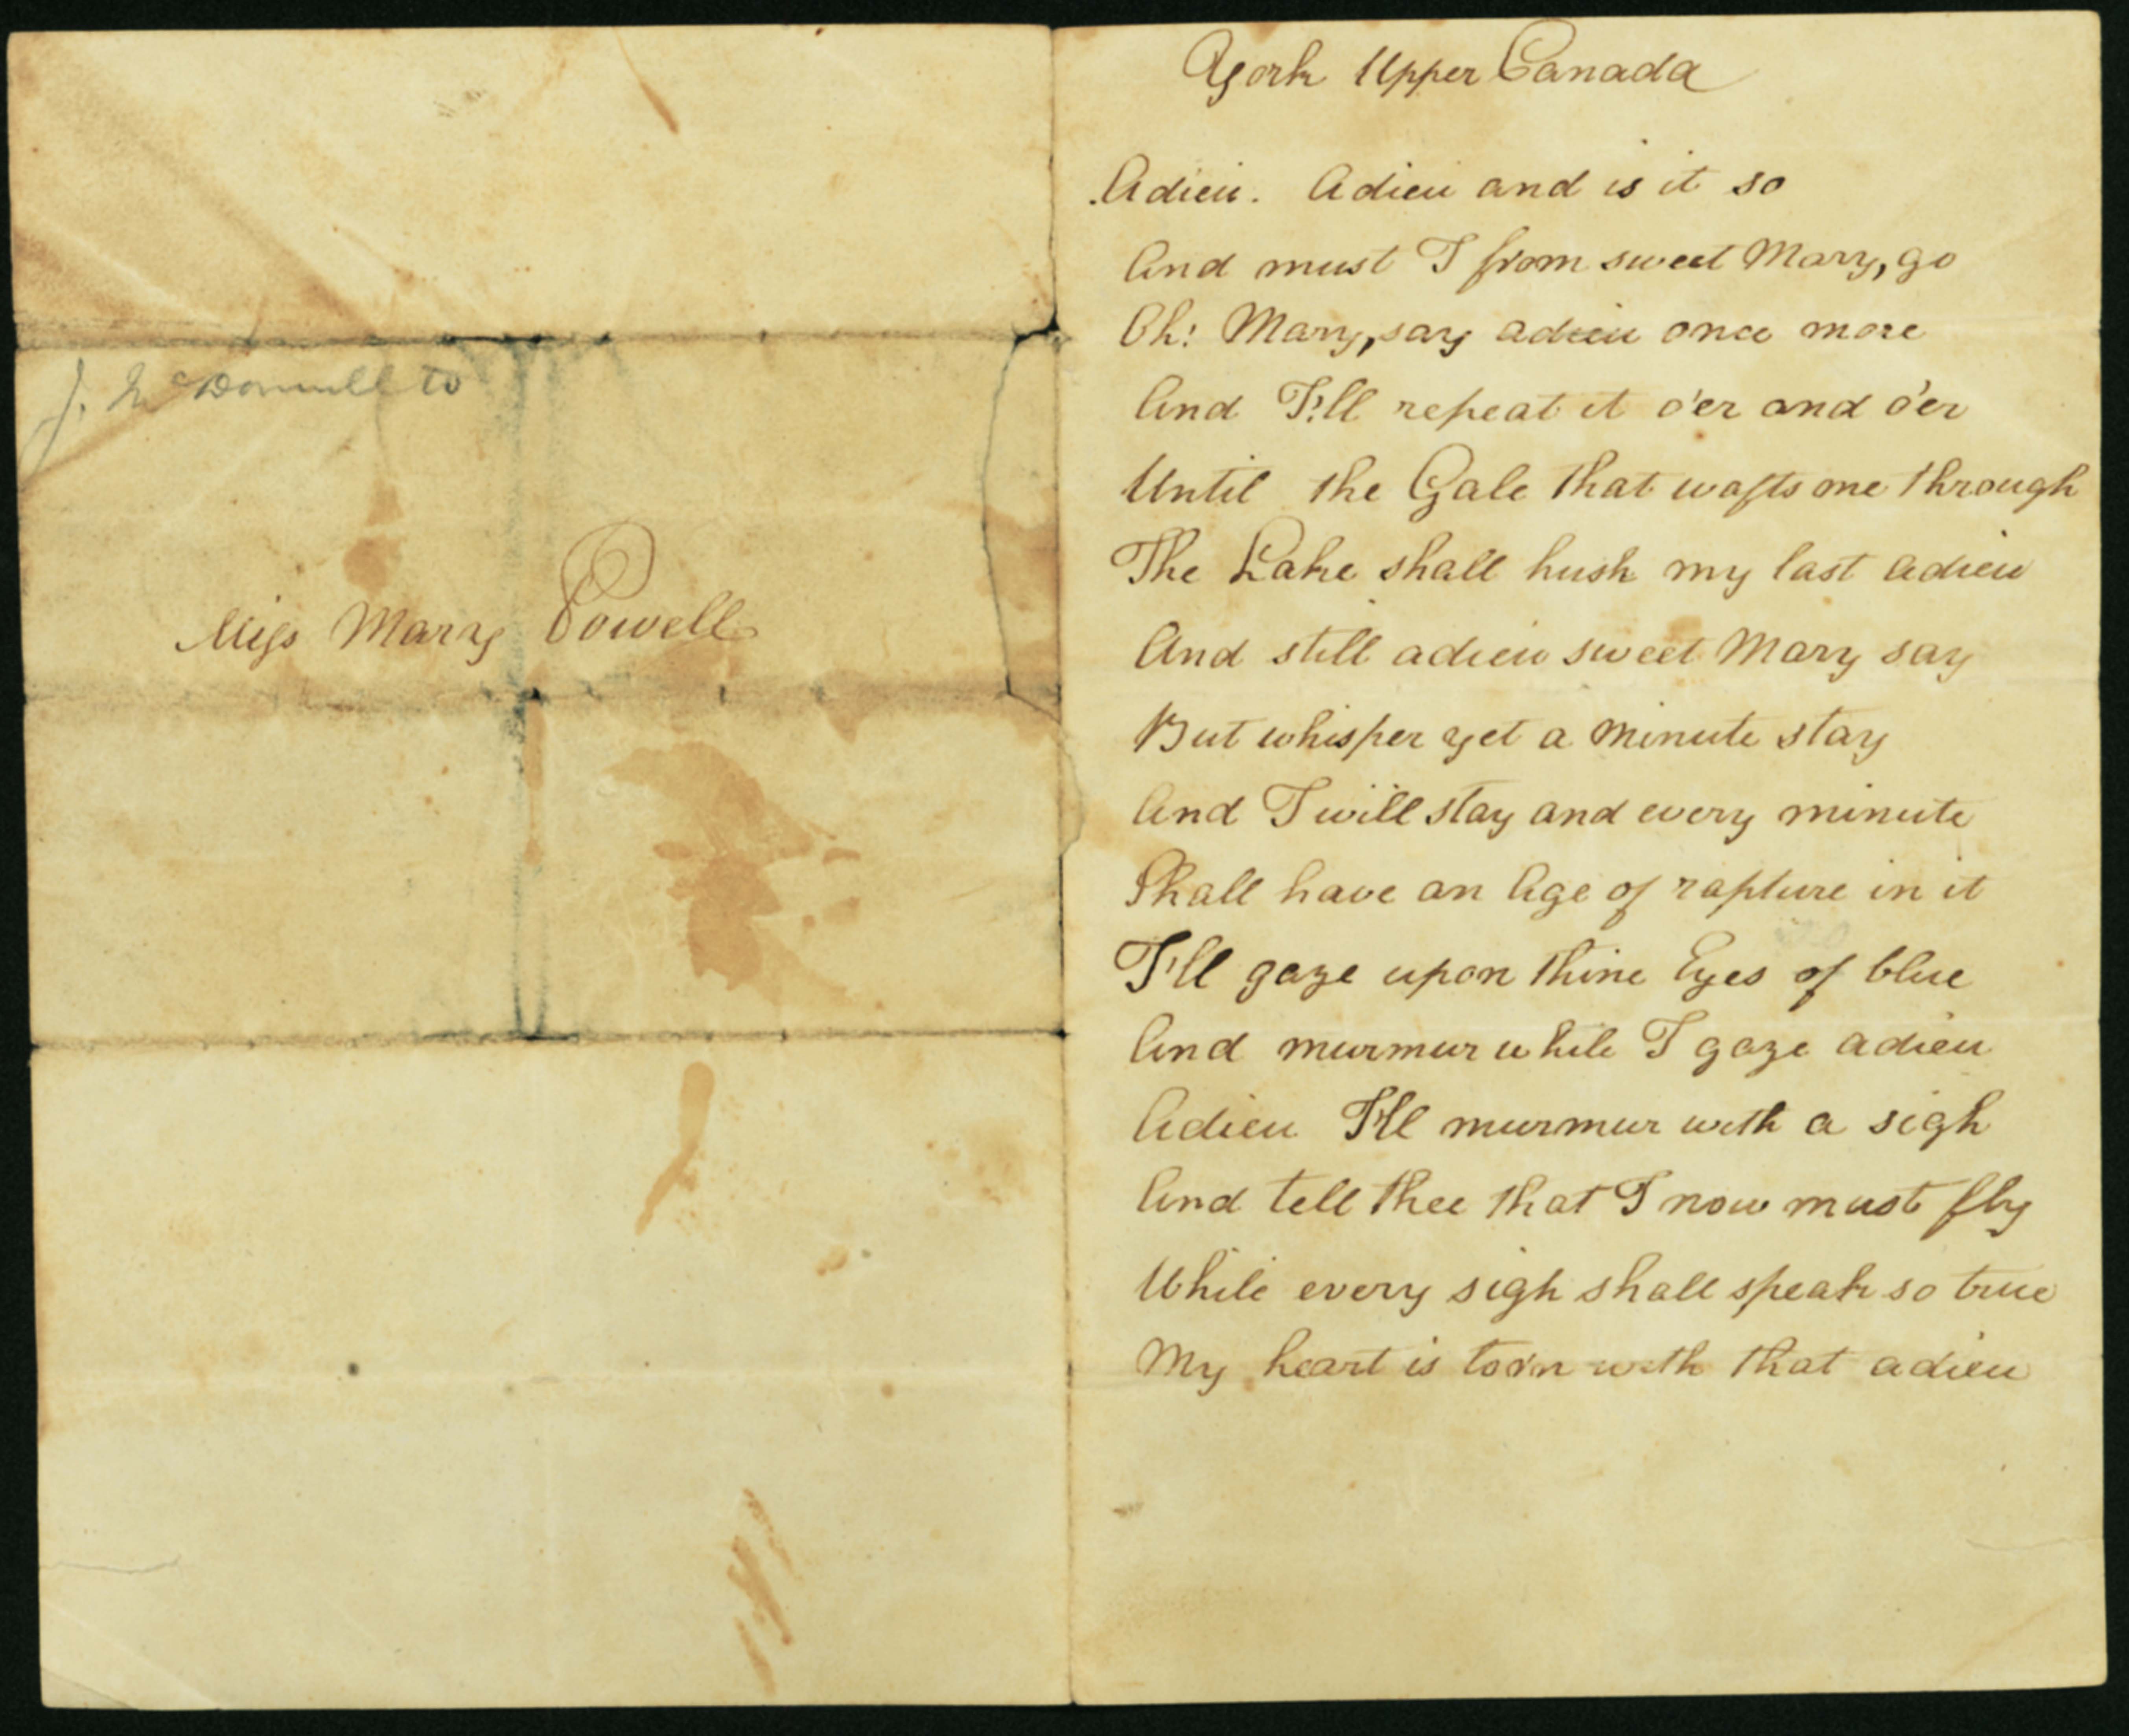 J. McDonnell to
Miss Mary Powell
York Upper Canada
Adieu. Adieu and is it so
And must I from sweet Mary, go
Oh! Mary, say adieu once more
And I'll repeat it o'er and o'er
Until the Gale that wafts me through
The Lake shall hush my last adieu
And still adieu sweet Mary say
But whisper yet a minute stay
And I will stay and every minute
Shall have an Age of rapture in it
I'll gaze upon thine Eyes of blue
And murmur while I gaze adieu
Adieu I'll murmur with a sigh
And tell thee that I now must fly
While every sigh shall speak so true
My heart is torn with that adieu